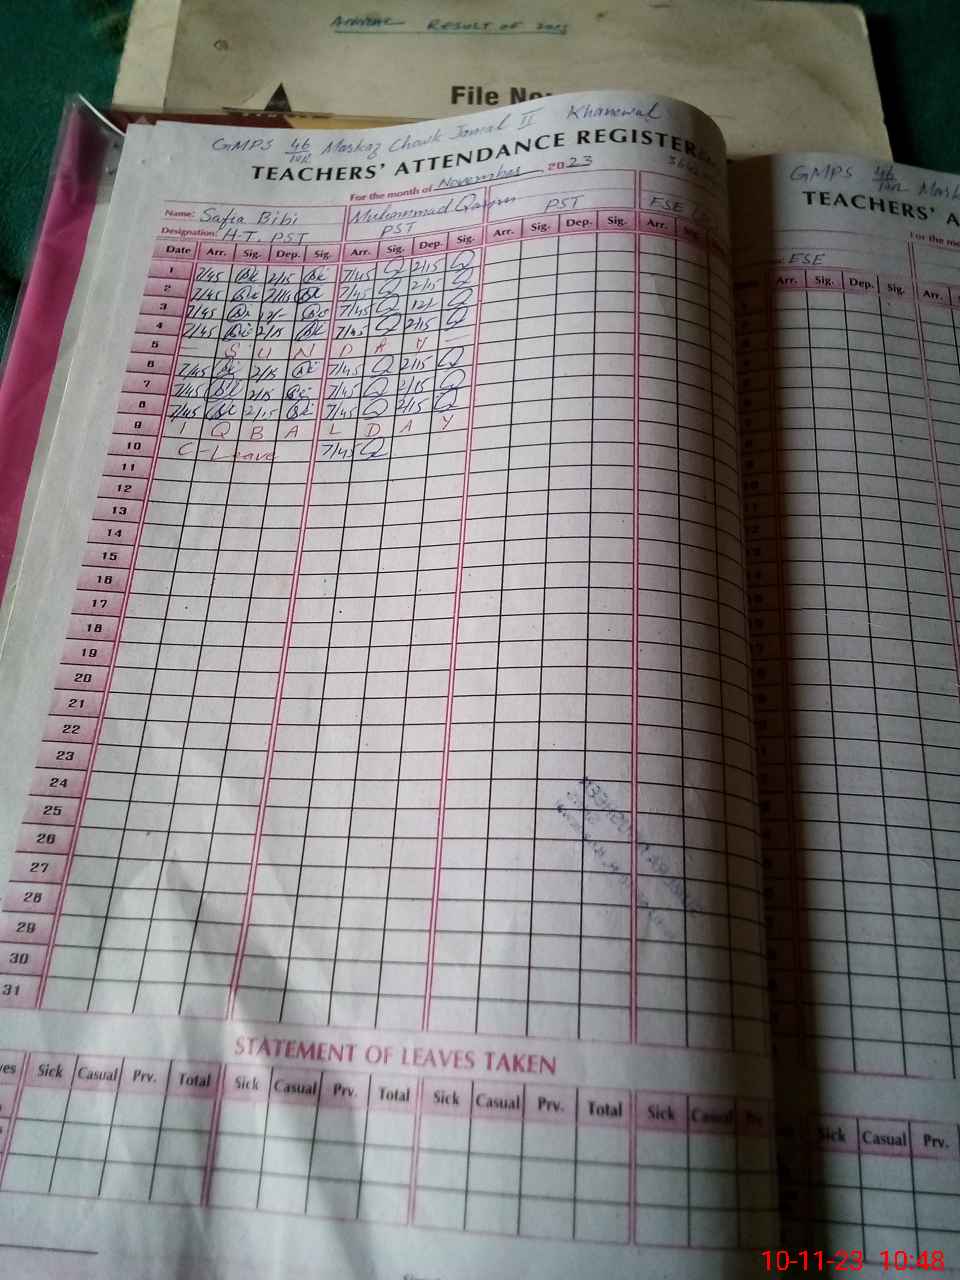 Annual RESULT OF
File No
GMPS 46/10R Markaz Chowk Jamal II Khanewal
TEACHERS' ATTENDANCE REGISTER
For the month of November 2023
Name: Safia Bibi Muhammad
Designation: H-T. PST PST PST ESE
Date Arr. Sig. Dep. Sig. Arr. Sig. Dep. Sig. Arr. Sig. Dep. Sig. Arr. Sig.
1 7/45 2/15 7/45 2/15
2 7/45 7/45 2/15
3 7/45 12/- 7/45 12/-
4 7/45 2/15 7/45 2/15
5 - S U N D A Y -
6 7/45 2/15 7/45 2/15
7 7/45 2/15 7/45 2/15
8 7/45 2/15 7/45 2/15
9 I Q B A L D A Y
10 C-Leave 7/45
11
12
13
14
15
16
17
18
19
20
21
22
23
24
25
26
27
28
29
30
31
STATEMENT OF LEAVES TAKEN
Sick Casual Prv. Total Sick Casual Prv. Total Sick Casual Prv. Total Sick Casual Prv
GMPS 46/10R
TEACHERS' A
For the mo
ESE
Arr. Sig. Dep. Sig. Arr.
Sick Casual Prv.
10-11-23 10:48